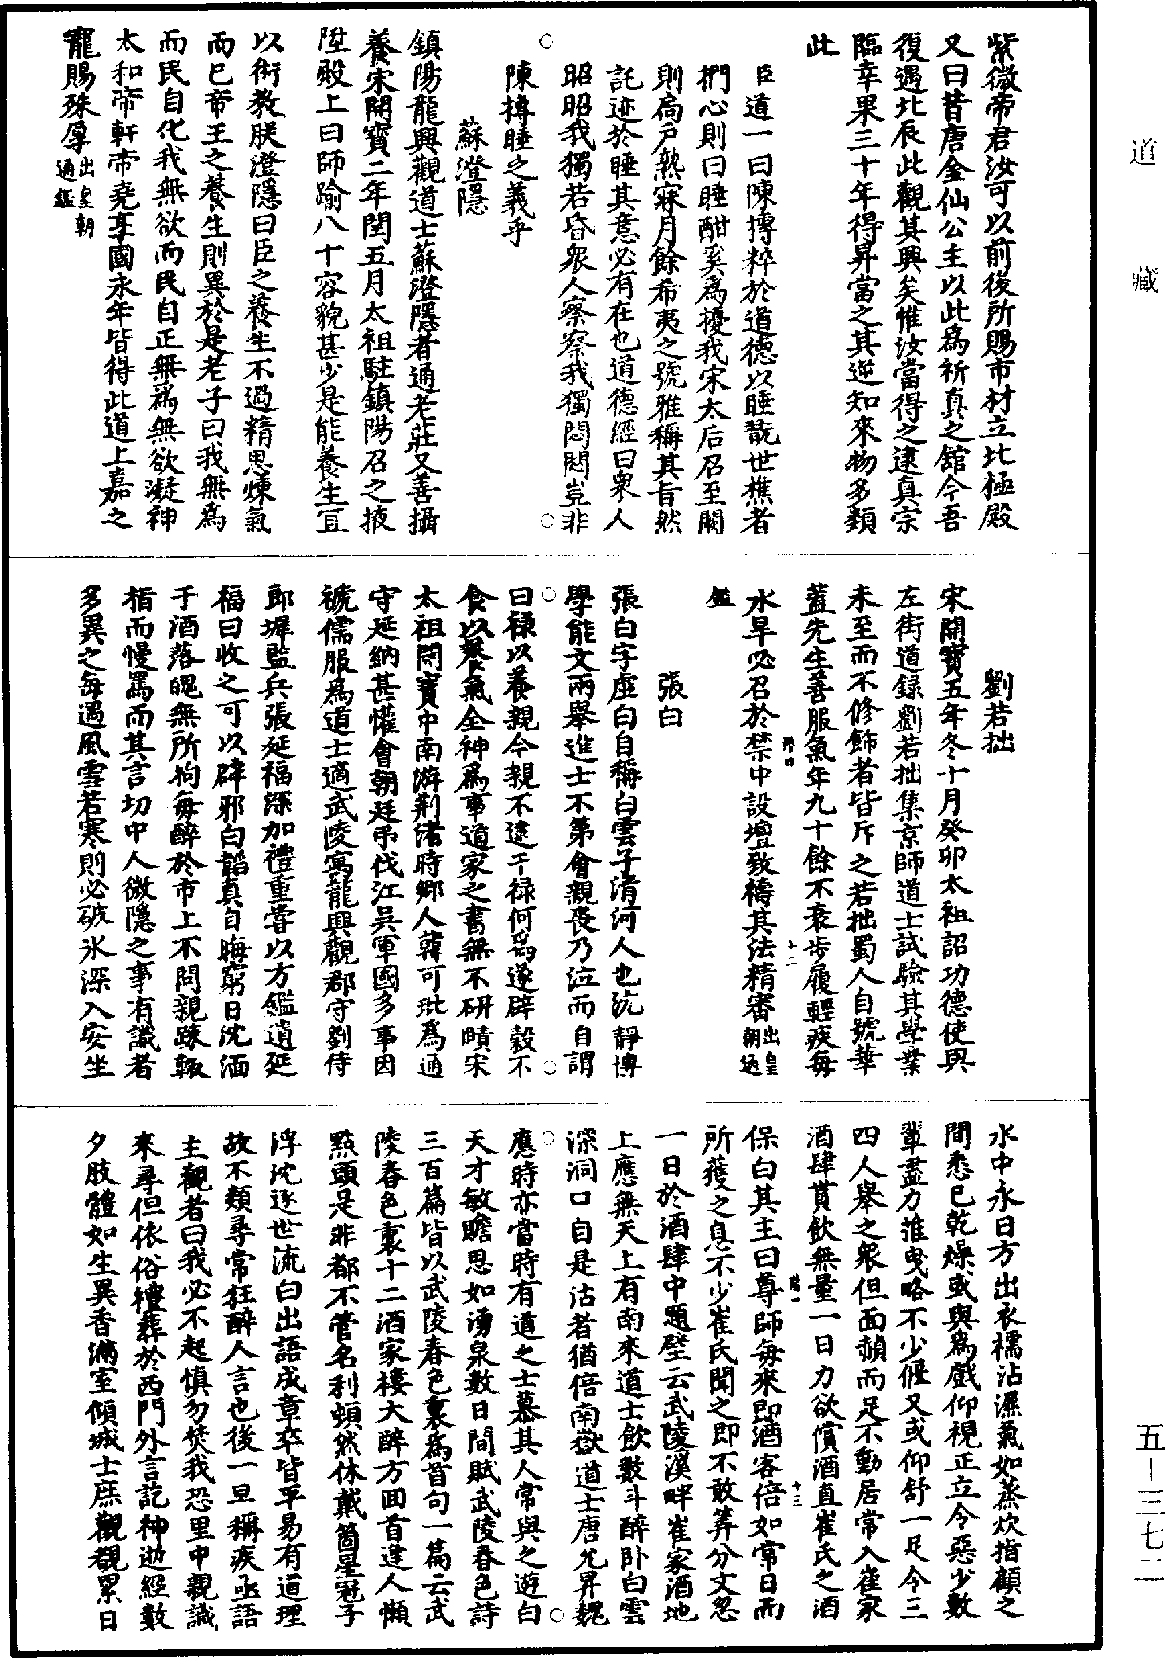 道藏
紫微帝君汝可以前後所賜市材立北極殿
又曰昔唐金仙公主以此為祈真之舘今吾
復遇北辰此觀其興矣惟汝當得之逮真宗
臨幸果三十年得昇當之其逆知來物多類
此
臣道一曰陳摶粹於道德以睡翫世樵者
捫心則曰睡酣奚為擾我宋太后召至闕
則扃戶熟寐月餘希夷之號雅稱其旨然
託迹於睡其意必有在也道德經曰衆人
昭昭我獨若昏衆人察察我獨悶悶豈非
陳摶睡之義乎
蘇澄隱
鎮陽龍興觀道士蘇澄隱者通老莊又善攝
養宋開寶二年閏五月太祖駐鎮陽召之掖
陞殿上曰師踰八十容貌甚少是能養生宜
以術教朕澄隱曰臣之養生不過精思煉氣
而已帝王之養生則異於是老子曰我無為
而民自化我無欲而民自正無為無欲凝神
太和帝軒帝堯享國永年皆得此道上嘉之
寵賜殊厚出皇朝通鑑
劉若拙
宋開寶五年冬十月癸卯太祖詔功德使與
左街道錄劉若拙集京師道士試驗其學業
未至而不修飾者皆斥之若拙蜀人自號華
蓋先生善服氣年九十餘不衰步履輕疾每
水旱必召於禁中設壇致禱其法精審出皇朝通
鑑
張白
張白字虛白自稱白雲子清河人也沈靜博
學能文兩舉進士不第會親喪乃泣而自謂
曰祿以養親今親不逮干祿何為遂辟穀不
食以養氣全神為事道家之書無不研賾宋
太祖開寶中南游荊渚時鄉人韓可玭為通
守延納甚懽會朝廷弔伐江吳軍國多事因
褫儒服為道士適武陵寓龍興觀郡守劉侍
郎墀監兵張延福深加禮重嘗以方鑑遺延
福曰收之可以辟邪白韜真自晦窮日沈湎
于酒落魄無所拘每醉於市上不問親踈輒
指而慢罵而其言切中人微隱之事有識者
多異之每遇風雪苦寒則必破氷深入安坐
水中永日方出衣襦沾濕氣如蒸炊指顧之
間悉已乾燥或與為戲仰視正立令惡少數
輩盡力推曳略不少偃又或仰舒一足令三
四人舉之衆但面赬而足不動居常入崔家
酒肆貰飲無量一日力欲償酒直崔氏之酒
保白其主曰尊師每來即酒客倍如常日而
所獲之息不少崔氏聞之即不敢筭分文忽
一日於酒肆中題壁云武陵溪畔崔家酒地
上應無天上有南來道士飲數斗醉卧白雲
深洞口自是沽者猶倍南嶽道士唐允昇魏
應時亦當時有道之士慕其人常與之遊白
天才敏贍思如湧泉數日間賦武陵春色詩
三百篇皆以武陵春色裏為首句一篇云武
陵春色裏十二酒家樓大醉方回首逢人懶
點頭是非都不管名利頓然休戴箇星冠子
浮沈逐世流白出語成章卒皆平易有道理
故不類尋常狂醉人言也後一旦稱疾亟語
主觀者曰我必不起慎勿焚我恐里中親識
來尋但依俗禮葬於西門外言訖神逝經數
夕肢體如生異香滿室傾城士庶觀覩累日
五－三七二